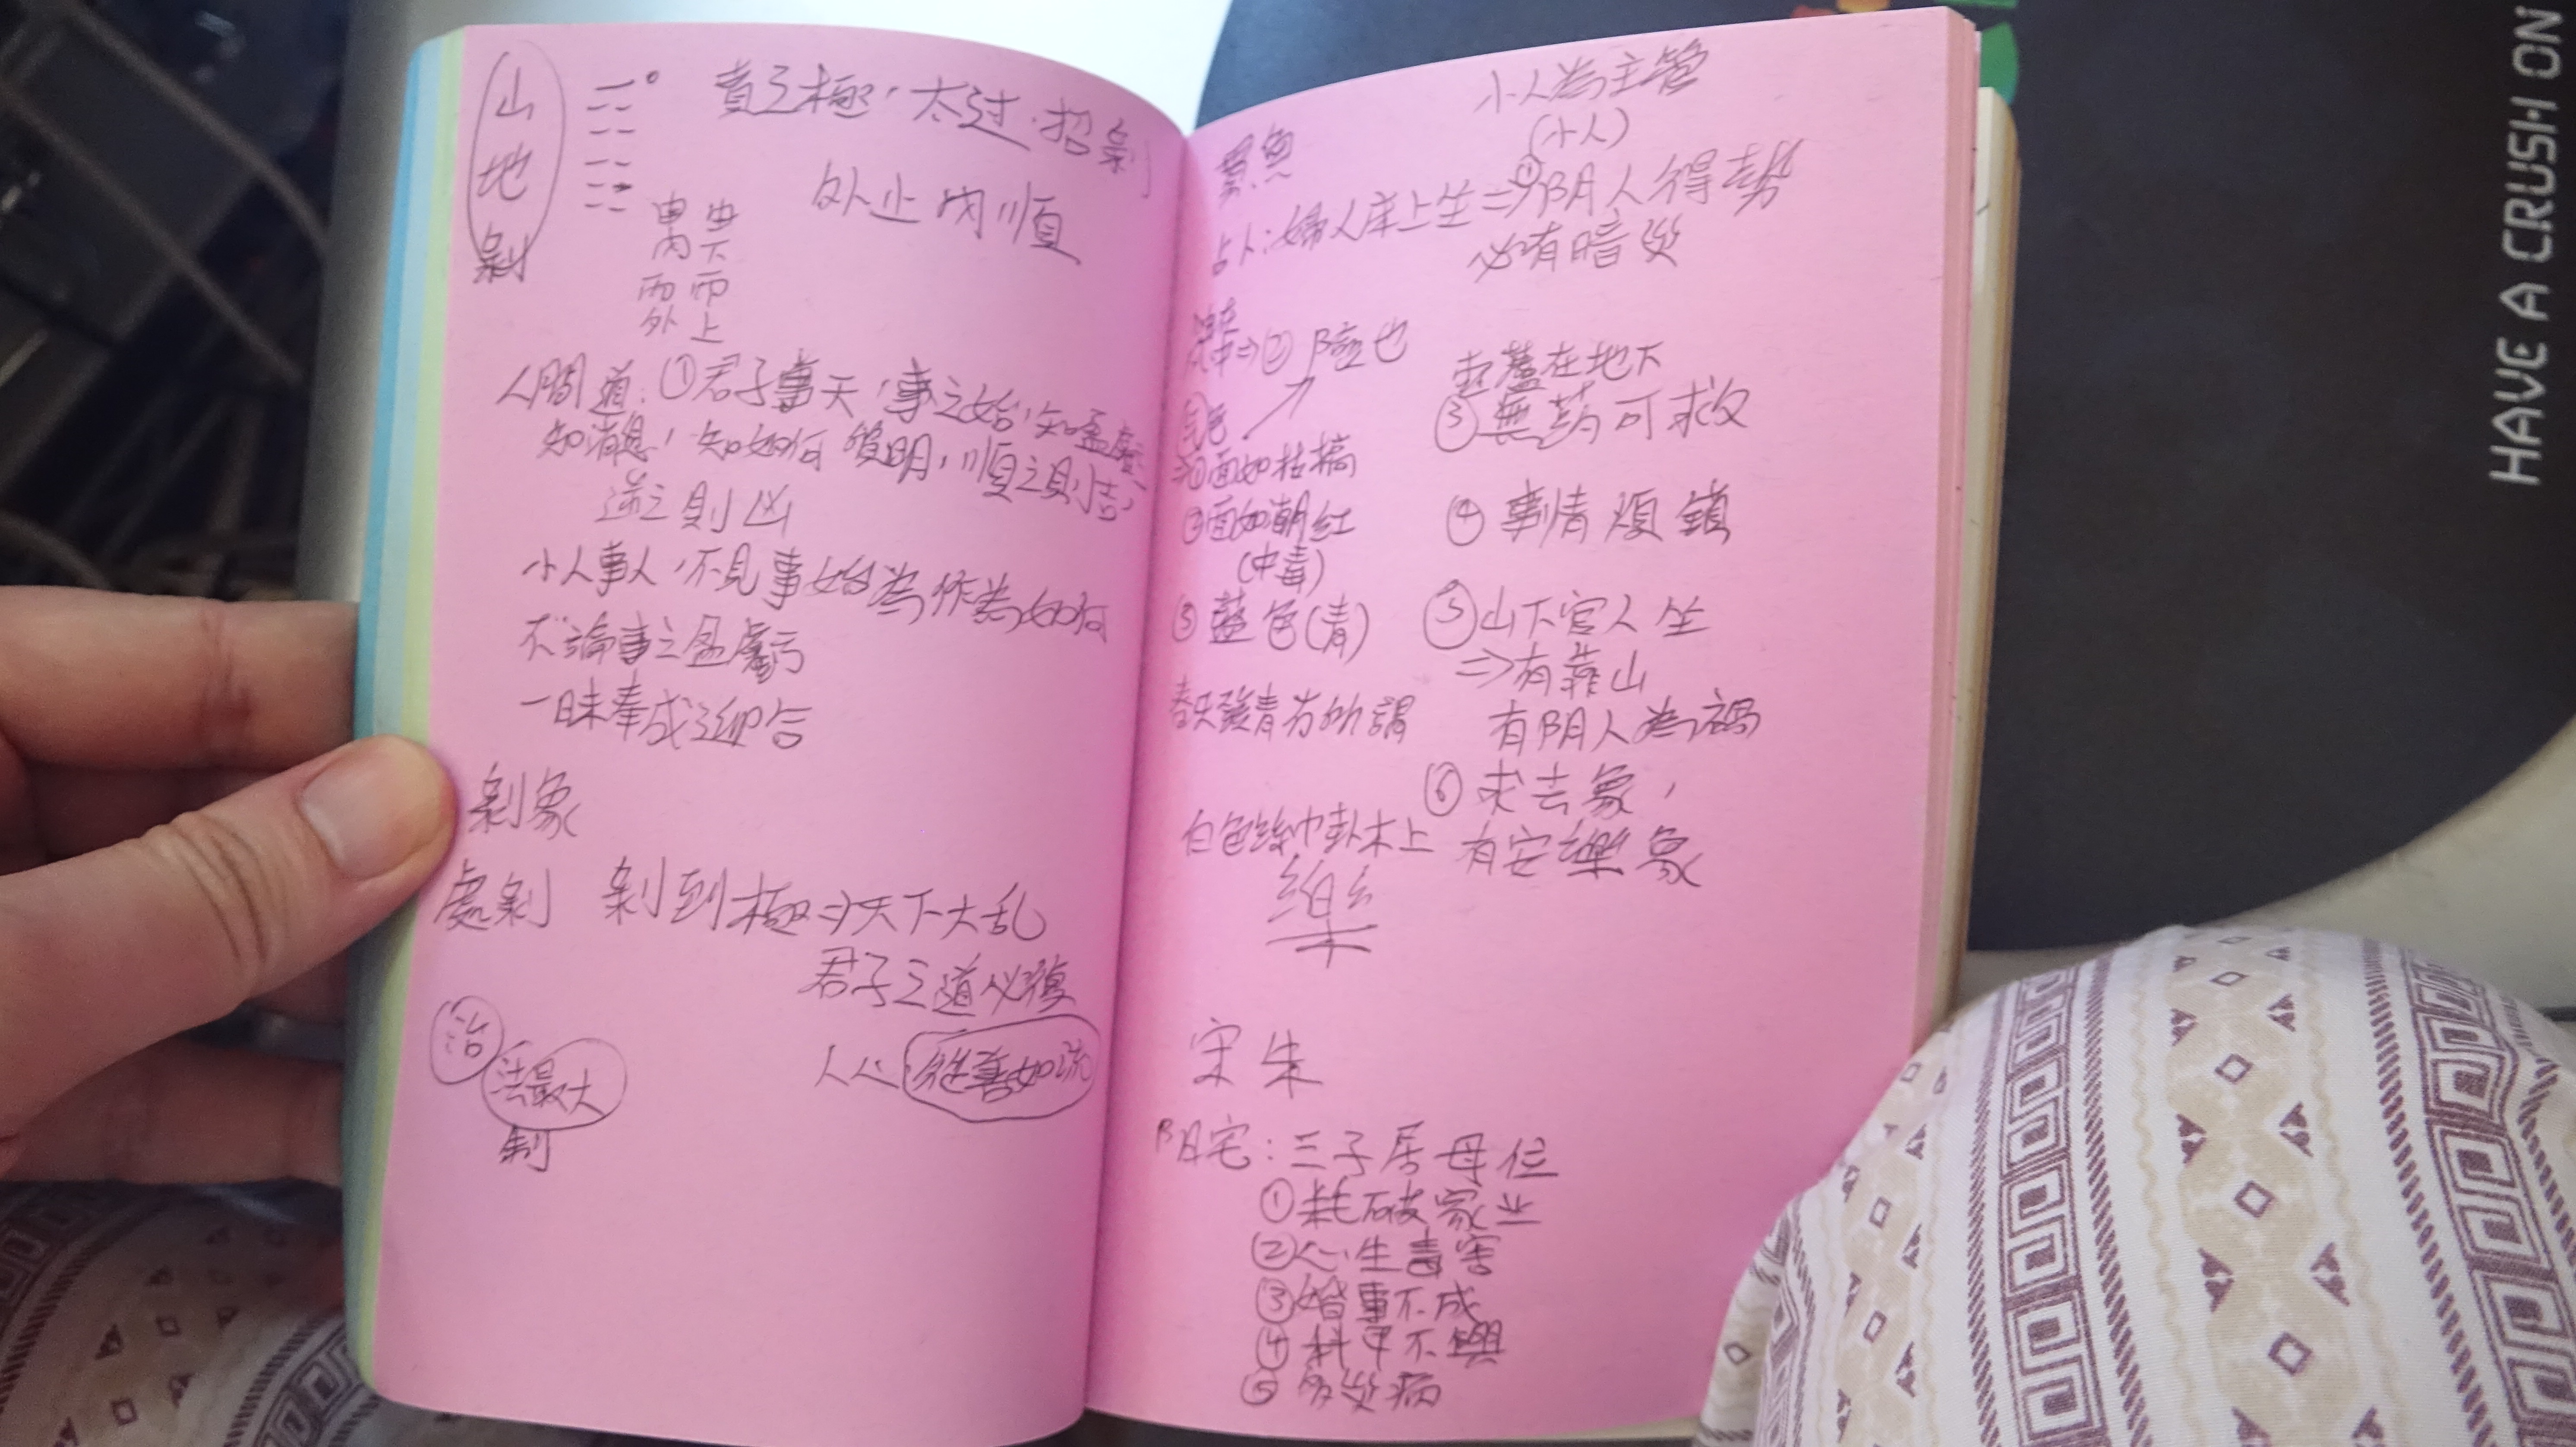 山地剝
賁之極，太过，招剝
外止內順
由內而外
由下而上
人間道：①君子事天，事之始，知盈虧，
知消息，知如何 明，順之則吉，
逆之則凶
小人事人，不見事始為作為如何
不論事之盈虧
一味奉成迎合
剝象
處剝 剝到極⇒天下大乱
君子之道必復
人心 從善如流
治
法最大
制
小人為主管
(小人)
占卜：婦人床上坐⇒①阴人得勢
必有暗災
⇒② 也
氣色
⇒①面如枯槁
②面如潮紅
(中毒)
③藍色(青)
春天發青为所謂
白色絲巾卦木上
樂
葢在地下
③無药可求
④事情煩鎖
⑤山下官人坐
⇒有靠山
有阴人為禍
⑥求去象，
有安樂象
宋朱
阴宅：三子居母位
①耗破家业
②心生毒害
③婚事不成
④科甲不興
⑤多災病
HAVE A CRUSH ON